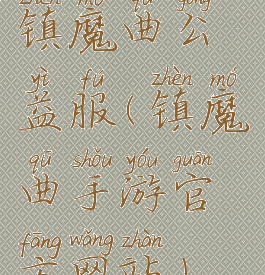 zhèn mó qū gōng
镇魔曲公
yì fú zhèn mó
益服(镇魔
qū shǒu yóu guān
曲手游官
fāng wǎng zhàn
方网站)